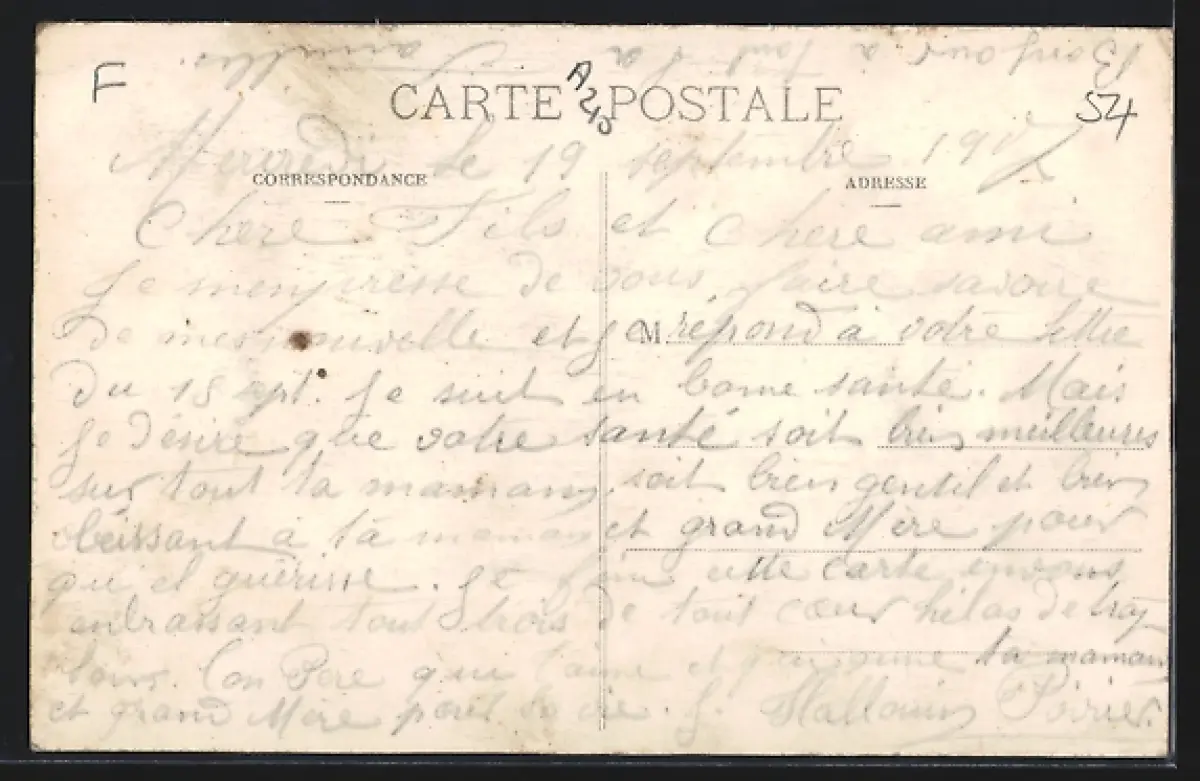 Bonjour à tout la famille.
F
A 40
54
CARTE POSTALE
Mercredi le 19 septembre 1917
CORRESPONDANCE
ADRESSE
Chère Fils et chère ami
Je menpresse de vous faire savoire
De mes nouvelle et Je répond à votre lettre
M
Du 15 sept. Je suit en bonne santé. Mais
Je Désire que votre santé soit bien meilleures
sur tout ta maman, soit bien gentil et bien
obéissant à ta maman et grand Mère pour
qu el guérisse. Je fini cette carte envous
enbrassant tout trois de tout cœur hélas De
loins. Ton Père qui t'aime et ta maman
et grand Mère pour la vie. J. Poirier.